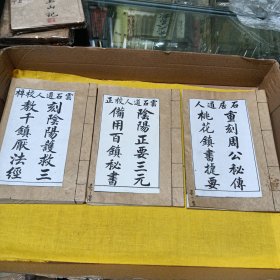 石居道人
重刻周公秘傳
桃花鎮書捷要
雲石道人校正
陰陽正要三元
備用百鎮秘書
雲石道人校梓
刻陰陽護救三
教千鎮厭法經
山記